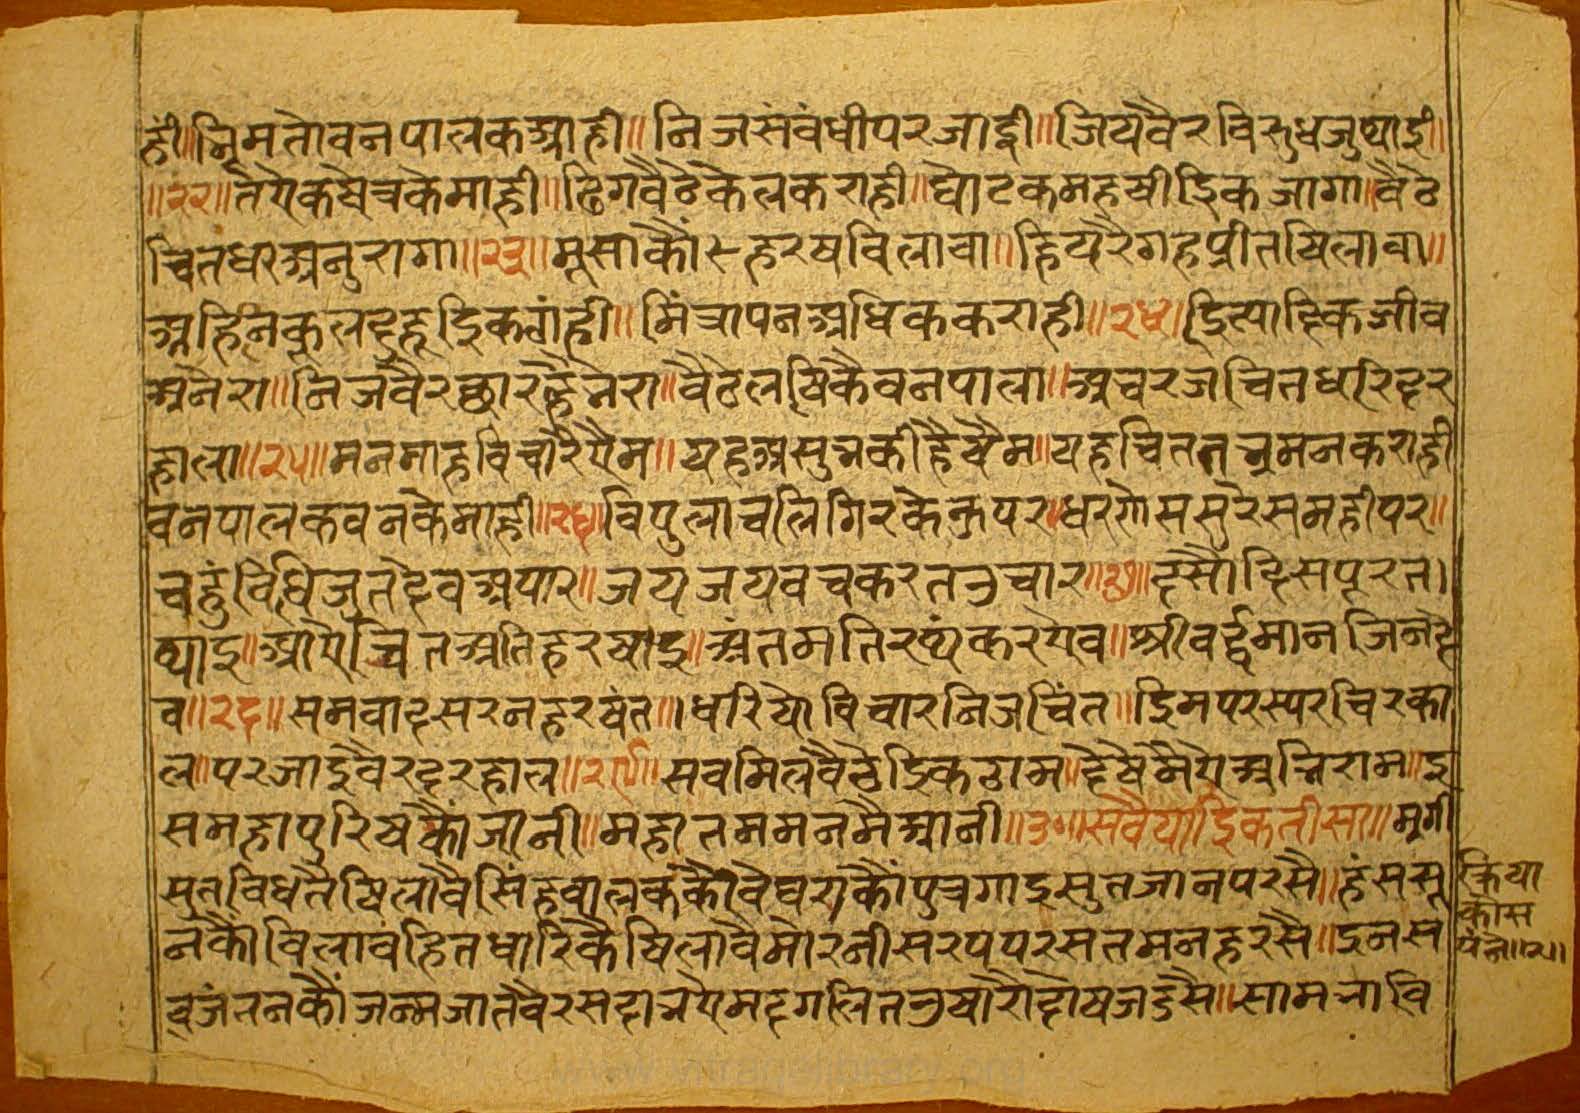 ही॥भ्रमतो वनपालक आही॥निज संबंधी परजाई॥जिय वैर विरुध जु थाई॥
॥२२॥ते एक षेचके माही॥ढिग वैठे केल कराही॥घोटक महषी इिक जागा॥वैठे
चित धर अनुरागा॥२३॥मूसा कौं हरष विलावा॥हियरै गह प्रीत षिलावा॥
अहि निकुल दुहू इिक ठांही॥मिंत्रापन अधिक कराही॥२४॥इित्यादिक जीव
अनेरा॥निज वैर छार है नेरा॥वैठे लषिकै वनपाला॥अचरज चित धारि दर
हाला॥२५॥मनमाह विचारै एम॥यह असुभ कीहै षेम॥यह चितत भ्रमन कराही
वनपालक वनकै माही॥२६॥विपुलाचल गिरकै ऊपर॥धरणेस सुरेस महीपर॥
चहुं विधि जुत देव अपार॥जय जय वच करत उचार॥२७॥दसौं दिस पूरत।
थाइ॥आए चित अति हरषाइ॥अंतम तिरथंकर एव॥श्री वर्द्धमान जिनदे
व॥२८॥समवादसरन हरषंत॥।धरियो विचार निज चिंत॥इिम परस्पर चिरका
ल॥परजाइ वैर दरहाल॥२९॥सव मिल वैठे इिक ठाम॥देषे मै ए अभिराम॥इ
स महा पुरिष कौं जानी॥महातम मन मै आनी॥३०॥सवैया इिकतीसा॥मृगी
सुत विध तै षिलावै सिंहवालक कौं वघरा कौं पुत्र गाइ सुत जान परसै॥हंस सू
न कौं विलाव हित धारिकै षिलावै मोरनी सरप परसत मन हरसै॥इन स
व जंतन कौं जन्म जात वैर सदा भए मद गलित उषारो दोष जडसै॥साम भावि
क्रिया
कोस
पंने॥२॥